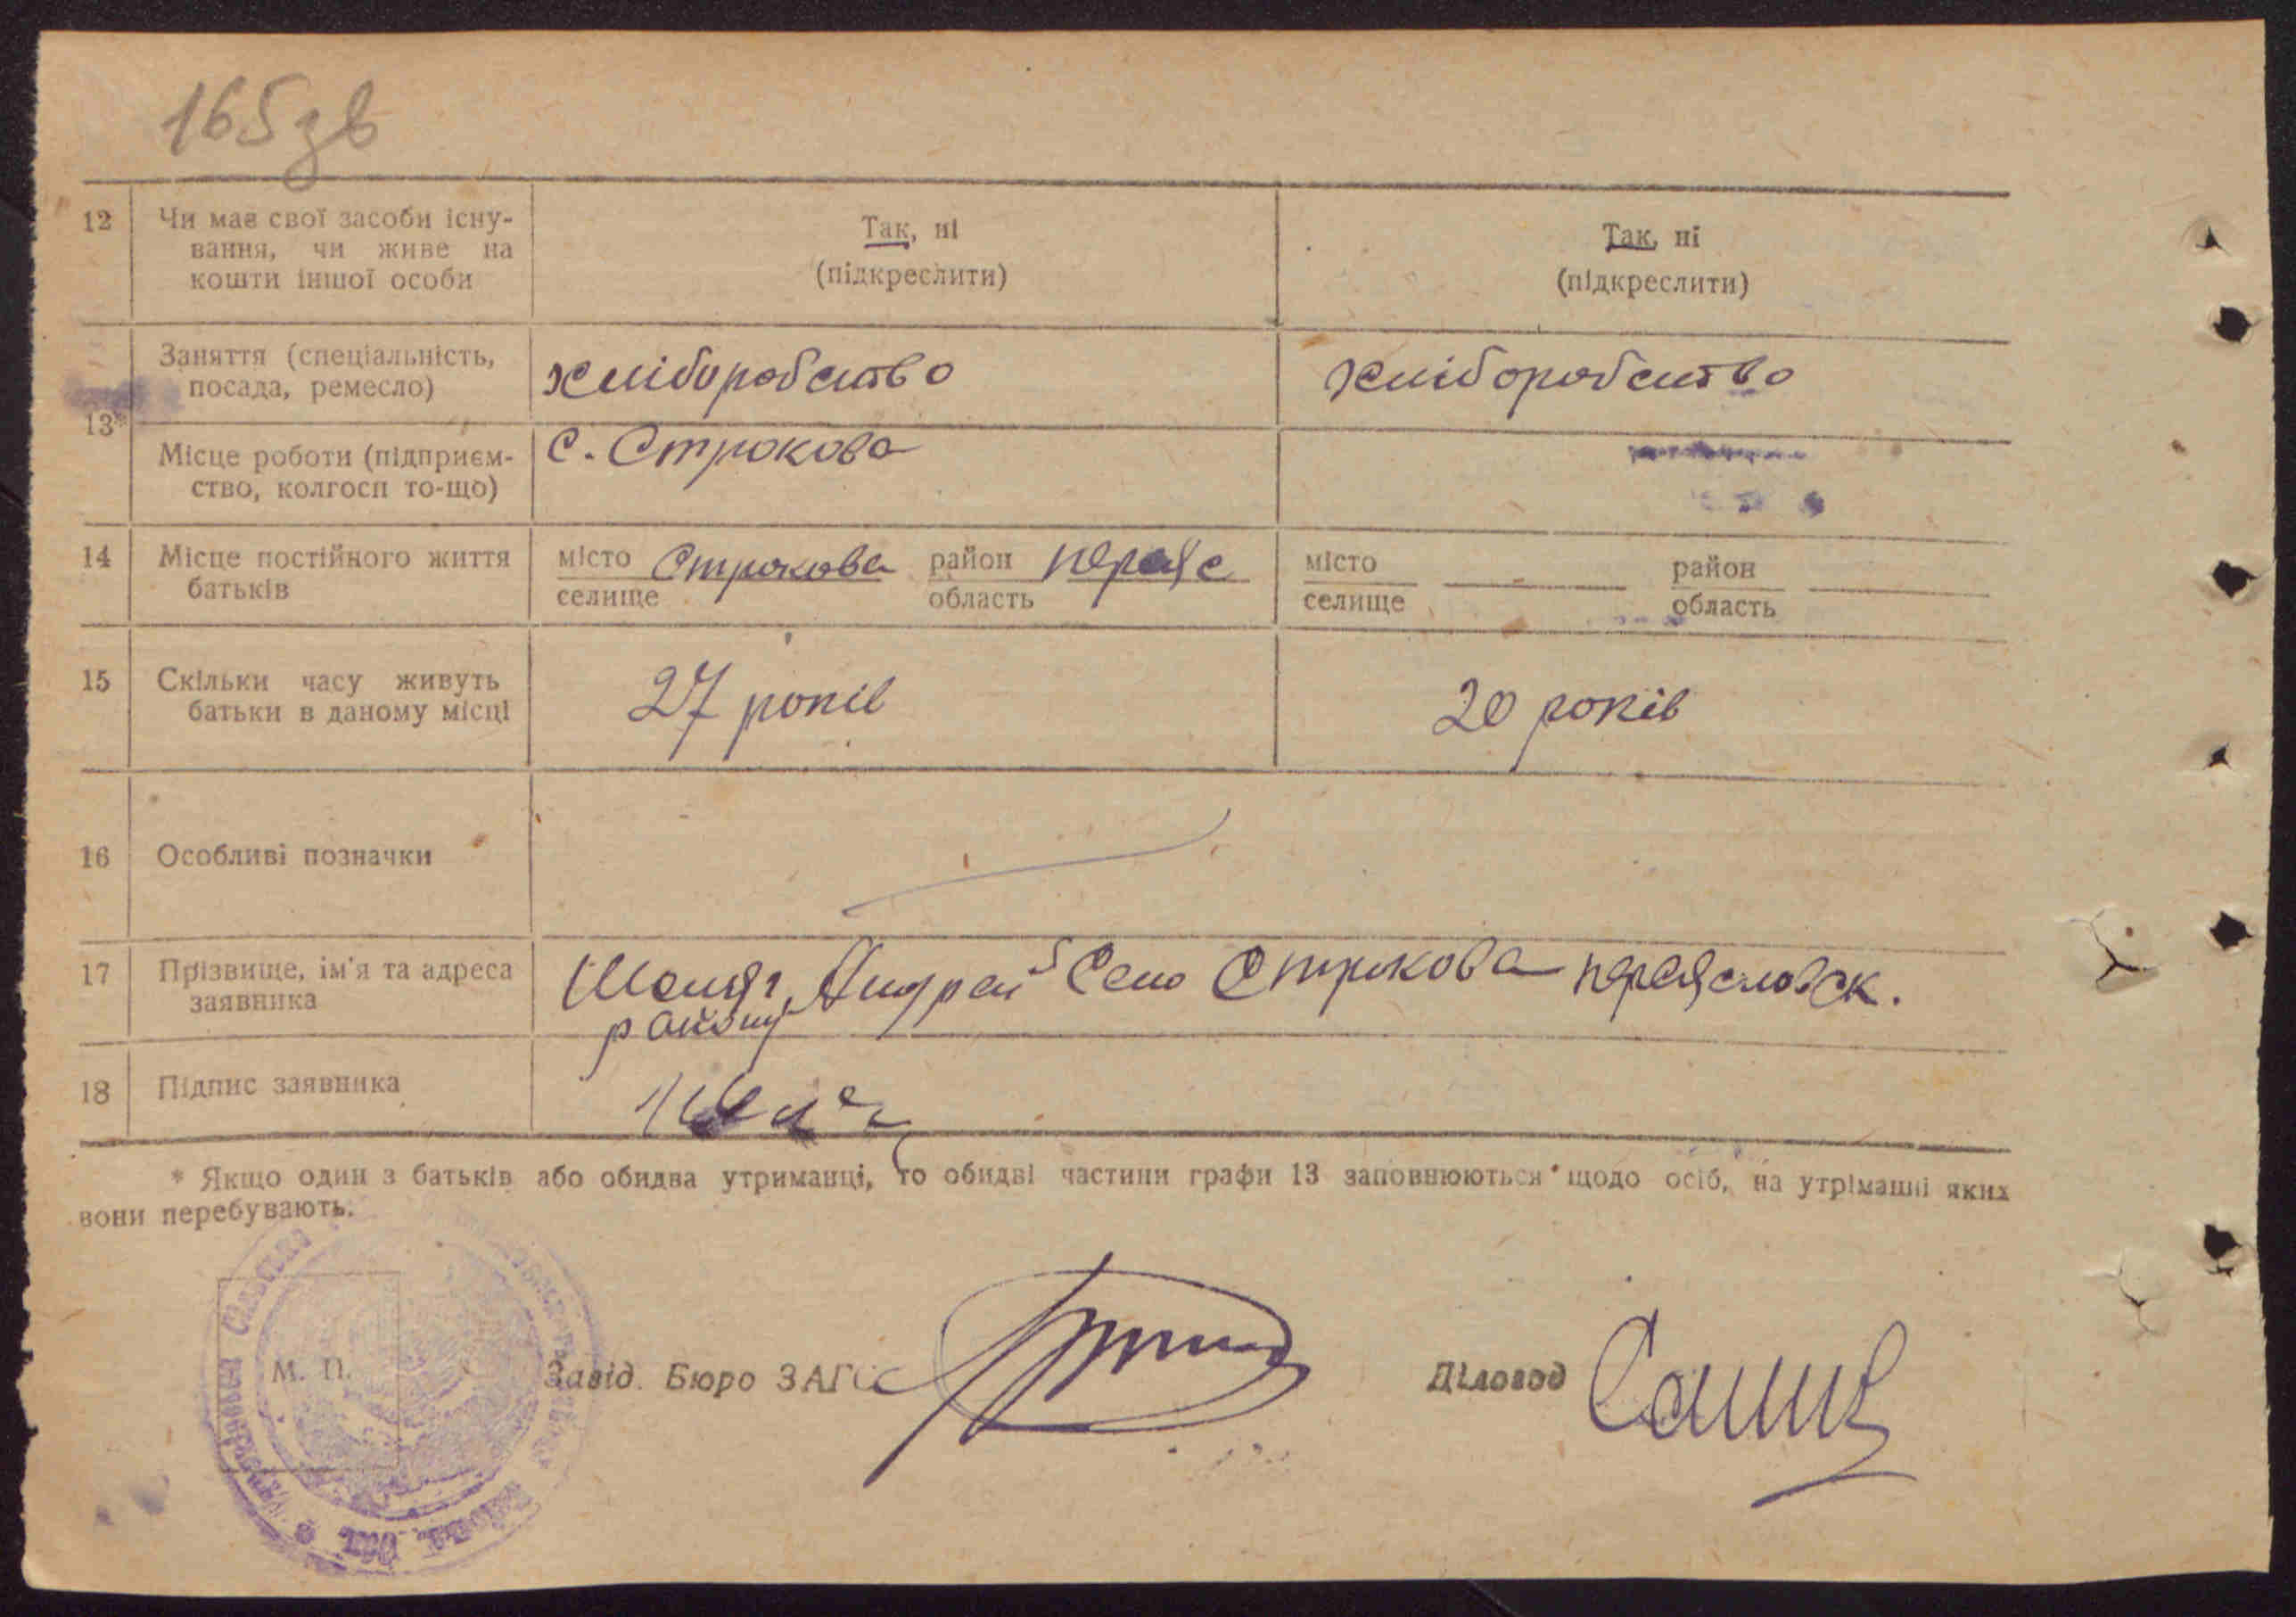 165 зв
12 Чи має свої засоби існу-
вання, чи живе на
кошти іншої особи
Так, ні
(підкреслити)
Так, ні
(підкреслити)
13*
Заняття (спеціальність,
посада, ремесло)
хліборобство
хліборобство
Місце роботи (підприєм-
ство, колгосп то-що)
с. Строкова
14 Місце постійного життя
батьків
місто
селище
Строкова
район
область
Переяс
місто
селище
район
область
15 Скільки часу живуть
батьки в даному місці
27 років
20 років
16 Особливі позначки
17 Прізвище, ім'я та адреса
заявника
Андрей Село Строкова Переясловск.
району
18 Підпис заявника
* Якщо один з батьків або обидва утриманці, то обидві частини графи 13 заповнюються щодо осіб, на утріманні яких
вони перебувають.
М. П.
Завід. Бюро ЗАГС
Діловод